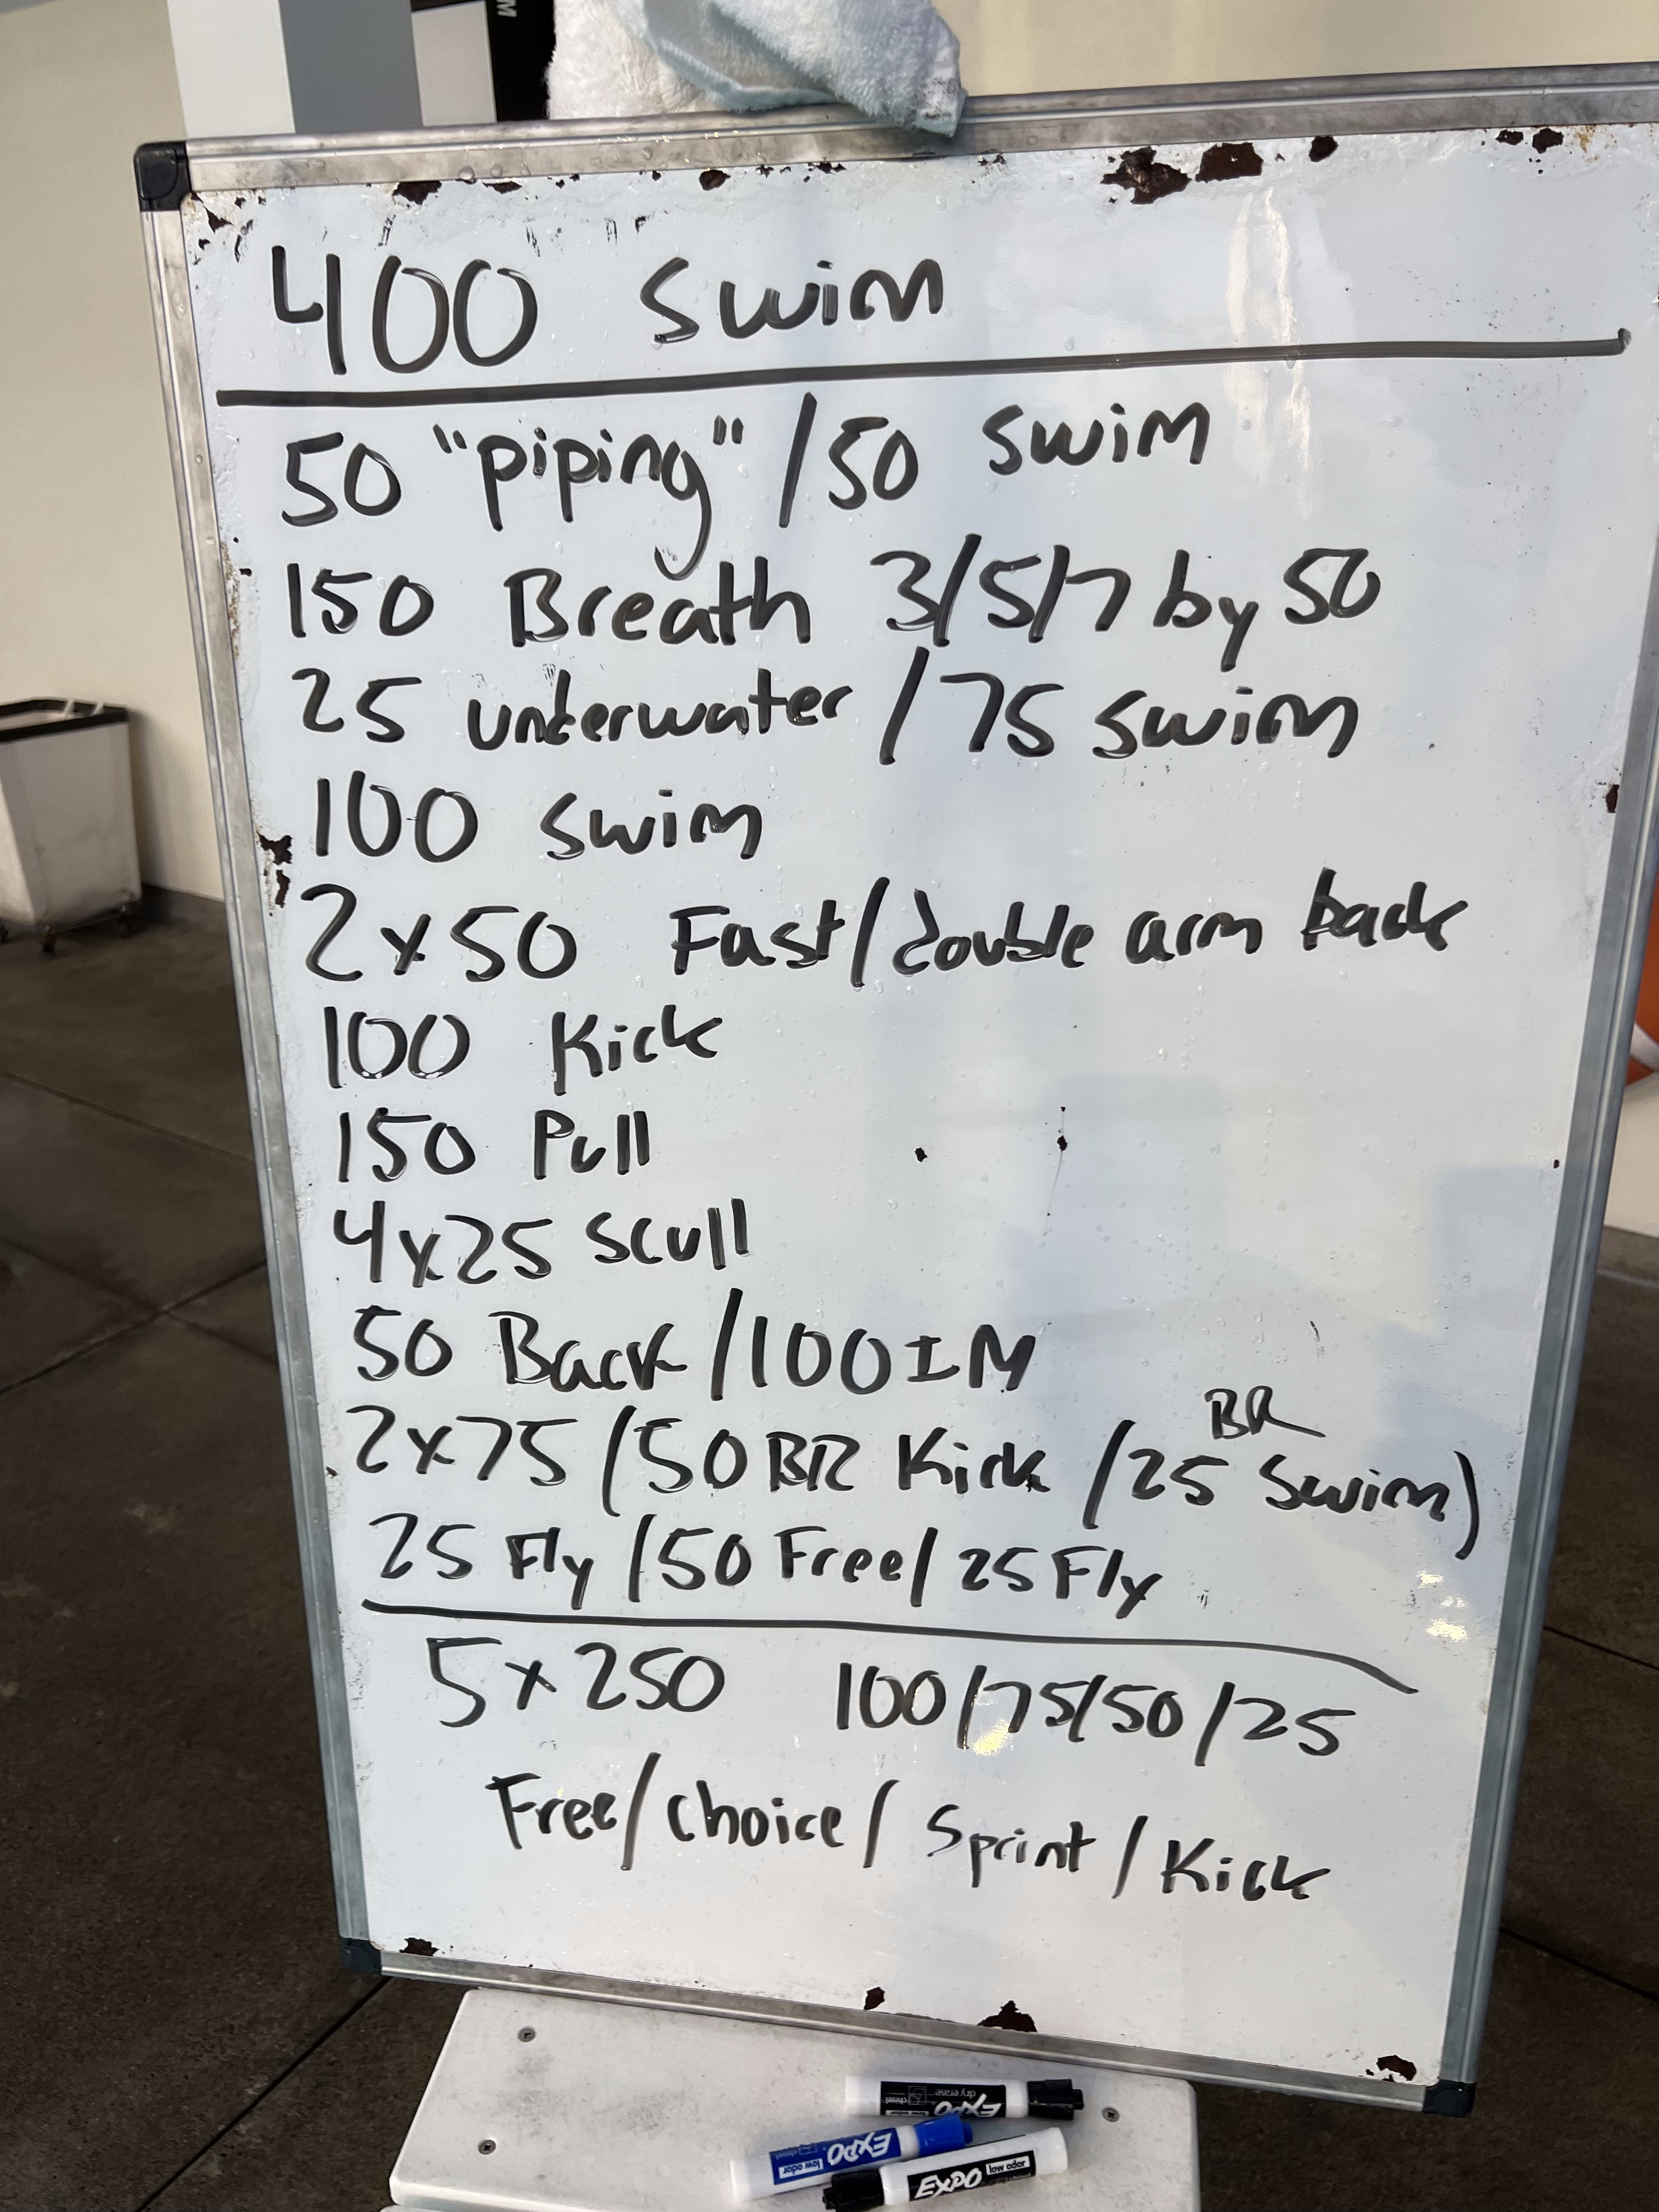 400 Swim
50 "piping" / 50 Swim
150 Breath 3/5/7 by 50
25 underwater / 75 Swim
100 Swim
2x50 Fast/double arm back
100 Kick
150 Pull
4x25 Scull
50 Back / 100 IM
BR
2x75 (50 BR Kick / 25 Swim)
25 Fly / 50 Free / 25 Fly
5x250 100/75/50/25
Free/choice/ Sprint / Kick
EXPO dry erase chisel
EXPO low odor
EXPO low odor